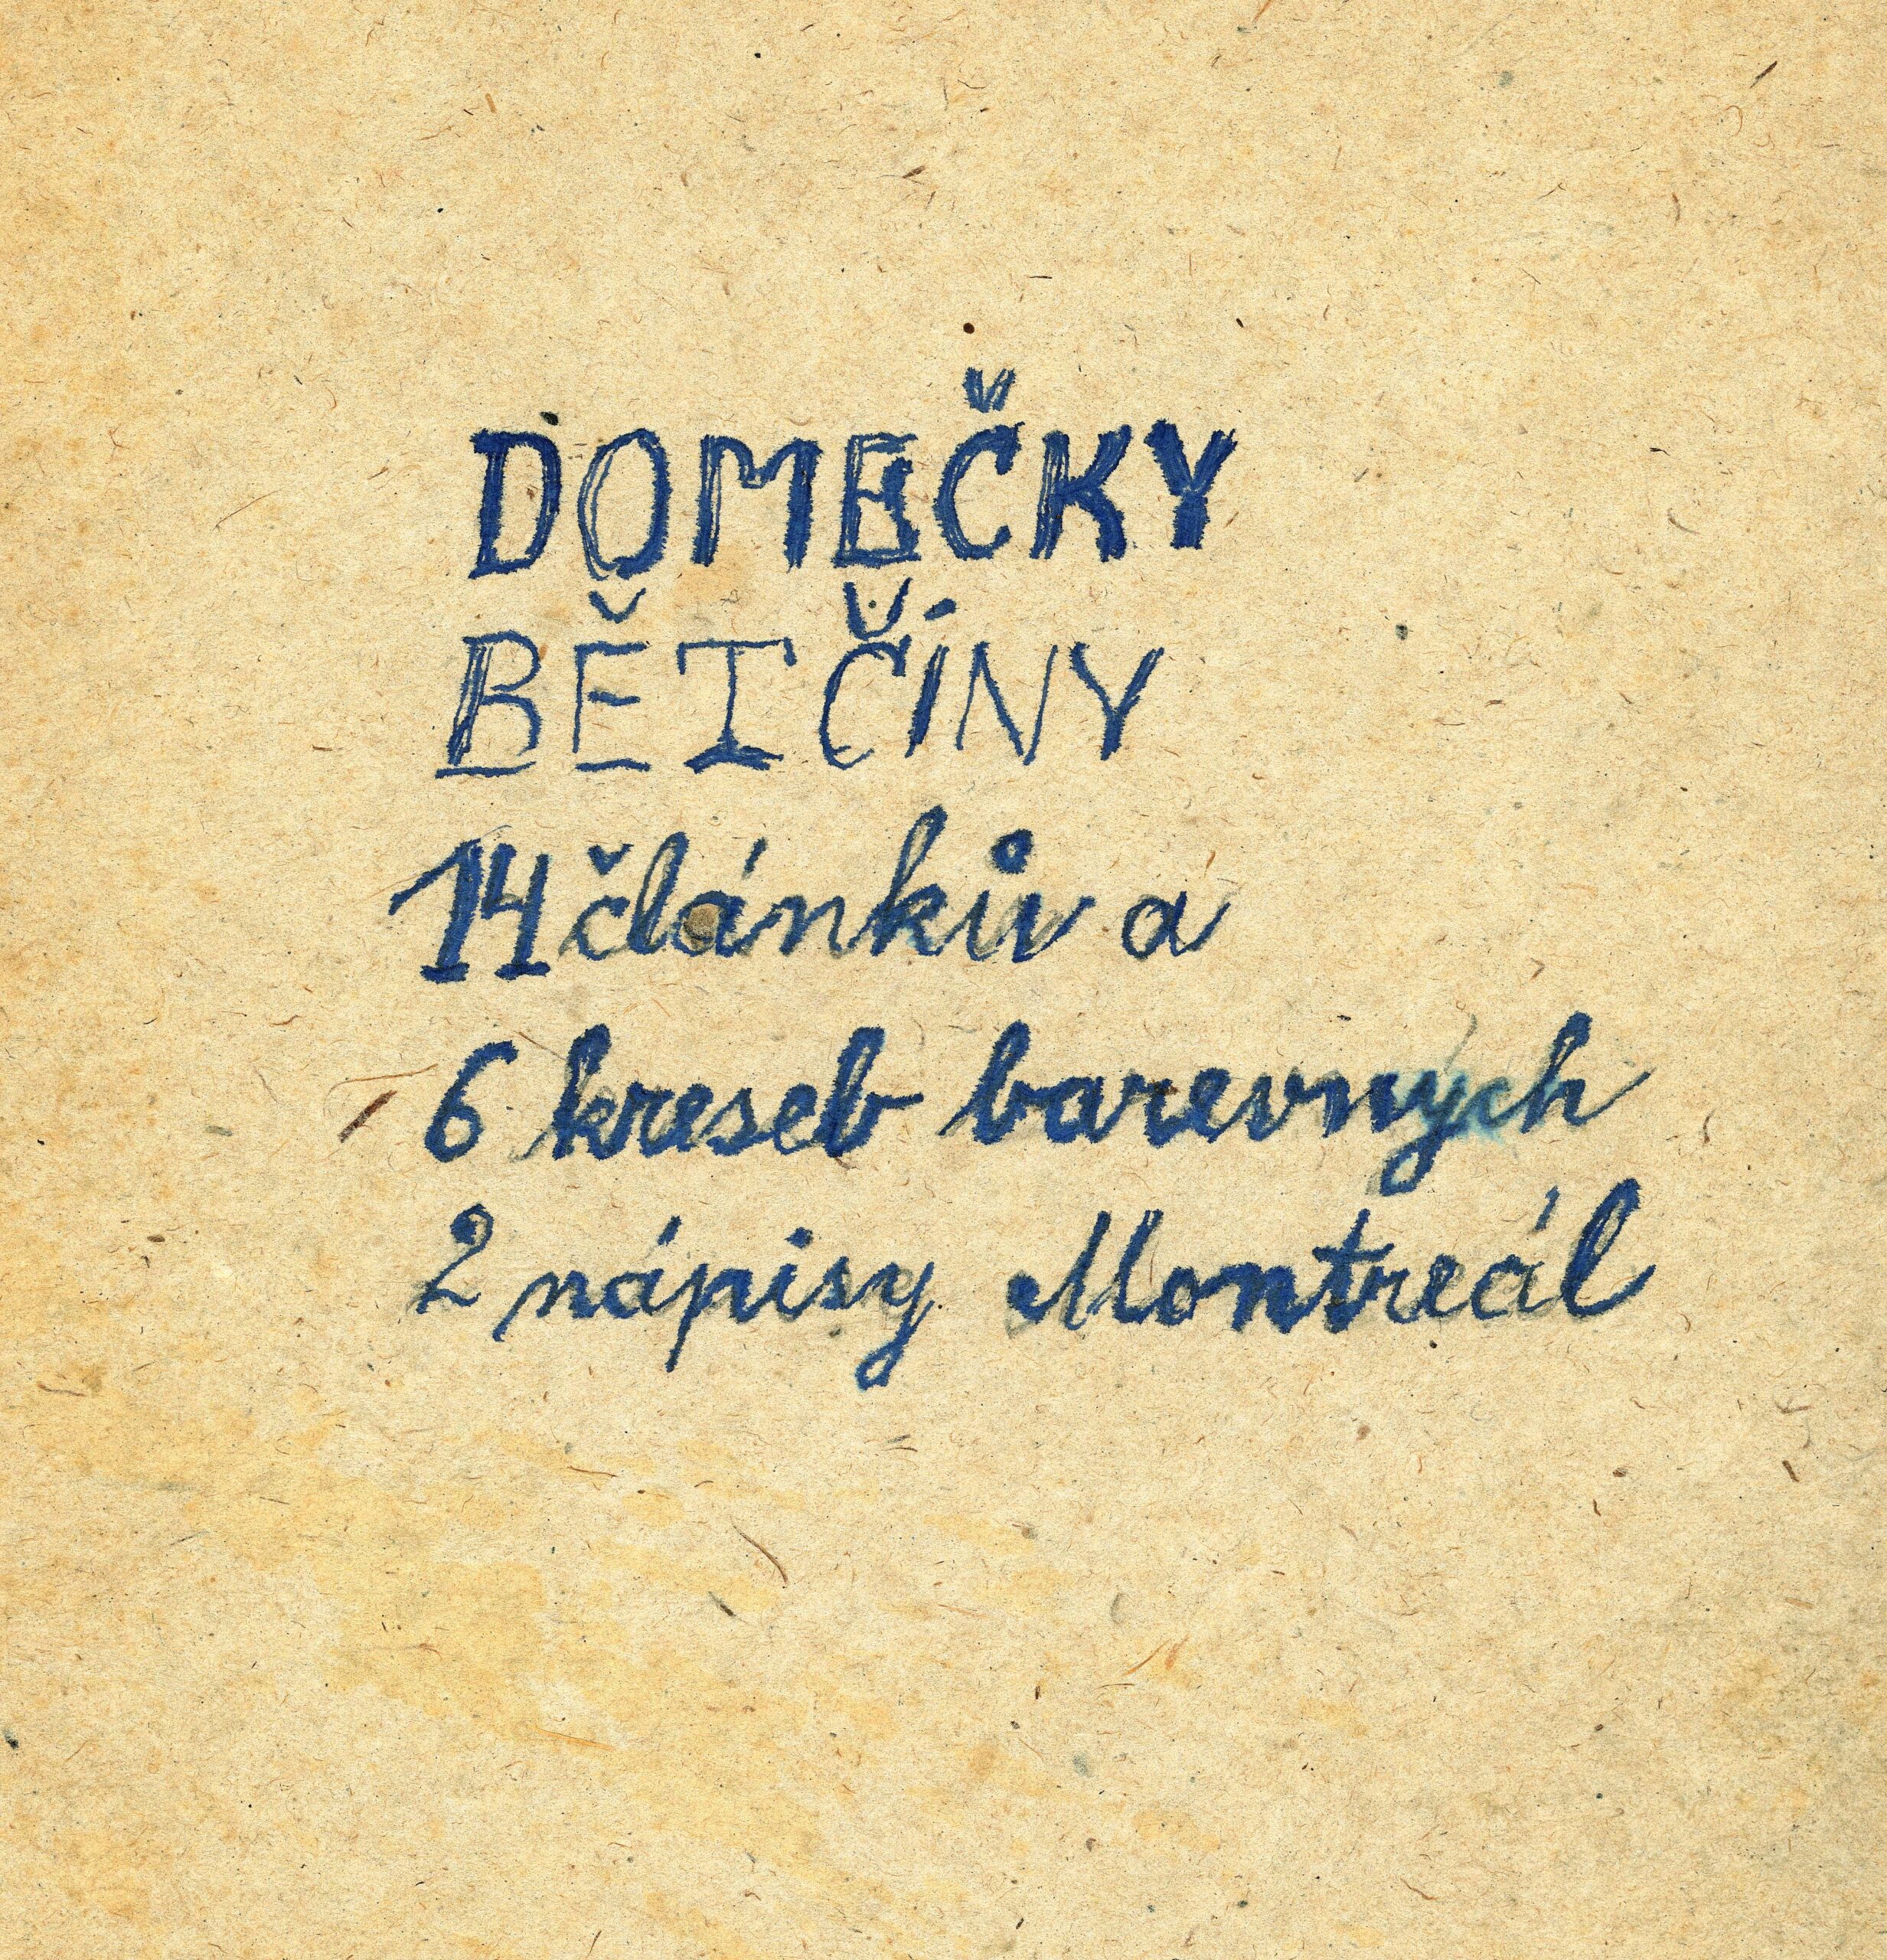 DOMEČKY
BĚTČÍNY
14 článků a
6 kreseb barevnych
2 nápisy Montreál